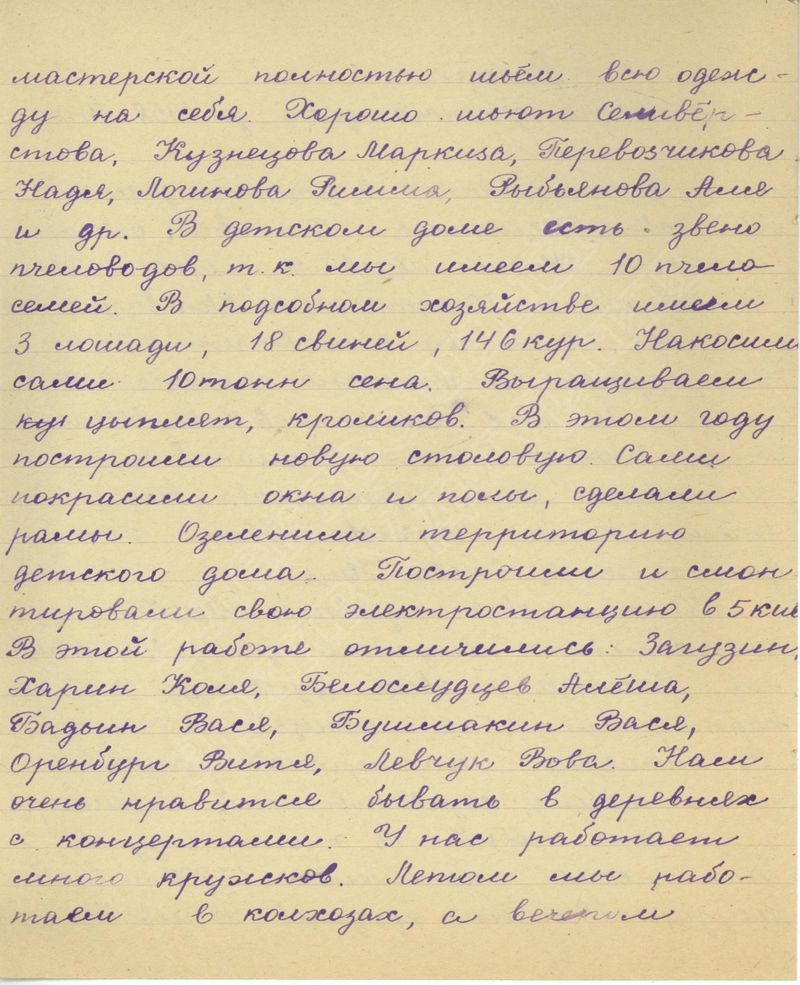 мастерской полностью шьём всю одеж-
ду на себя. Хорошо шьют Селивёр-
стова, Кузнецова Маркиза, Перевозчикова
Надя, Логинова Римма, Рыбьянова Аля
и др. В детском доме есть звено
пчеловодов, т.к. мы имеем 10 пчело
семей. В подсобном хозяйстве имеем
3 лошади, 18 свиней, 146 кур. Накосили
сами 10 тонн сена. Выращиваем
цыплят, кроликов. В этом году
построили новую столовую. Сами
покрасили окна и полы, сделали
рамы. Озеленили территорию
детского дома. Построили и смон
тировали свою электростанцию в 5
В этой работе отличились: Загузин,
Харин Коля, Белослудцев Алёша,
Бадьин Вася, Бушмакин Вася,
Оренбург Витя, Левчук Вова. Нам
очень нравится бывать в деревнях
с концертами. У нас работает
много кружков. Летом мы рабо-
таем в колхозах, а вечером